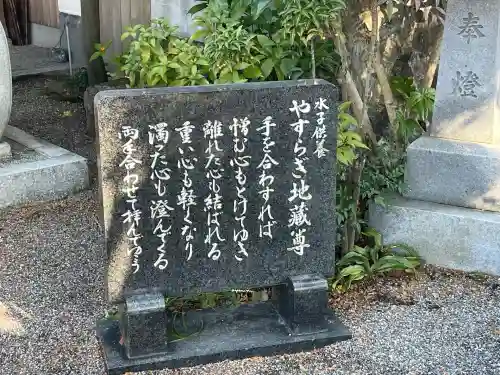 水子供養
やすらぎ地蔵尊
手を合わすれば
憎む心もとてゆき
離れた心も結ばれる
重い心も軽くなり
濁った心も澄んでくる
両手合わせて拝んでみよう
奉燈